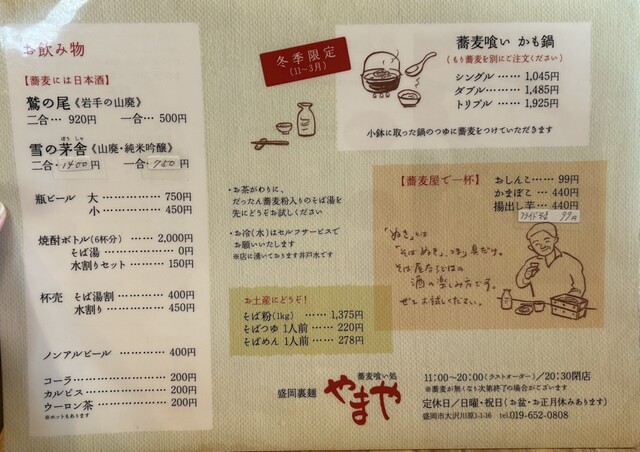 お飲み物
【蕎麦には日本酒】
鷲の尾《岩手の山廃》
二合… 920円 一合… 500円
雪の茅舎《山廃・純米吟醸》
ぼう しゃ
二合・1400円 一合・750円
瓶ビール 大 …………… 750円
小 …………… 450円
焼酎ボトル(6杯分) …… 2,000円
そば湯 …………… 0円
水割りセット ……… 150円
杯売 そば湯割 ………… 400円
水割り …………… 450円
ノンアルビール …………… 400円
コーラ …………………… 200円
カルピス ………………… 200円
ウーロン茶 ……………… 200円
※ホットもあります
冬季限定
(11〜3月)
蕎麦喰い かも鍋
(もり蕎麦を別にご注文ください)
シングル …… 1,045円
ダブル …… 1,485円
トリプル …… 1,925円
小鉢に取った鍋のつゆに蕎麦をつけていただきます
・お茶がわりに、
だったん蕎麦粉入りのそば湯を
先にどうぞお試しください
・お冷(水)はセルフサービスで
お願いいたします
※店に湧いております井戸水です
【蕎麦屋で一杯】 おしんこ …… 99円
かまぼこ … 440円
揚出し芋 … 440円
フライドそば 99円
「ぬき」とは
「そばぬき」、つまり具だけ。
そば屋ならではの
酒の楽しみ方です。
ぜひお試しください。
お土産にどうぞ!
そば粉(1kg) …… 1,375円
そばつゆ 1人前 …… 220円
そばめん 1人前 …… 278円
盛岡裏麺
蕎麦喰い処
やまや
11:00〜20:00(ラストオーダー)/20:30閉店
※蕎麦が無くなり次第終了の場合がございます
定休日/日曜・祝日(お盆・お正月休みあります)
盛岡市大沢川原1-1-16 tel.019-652-0808